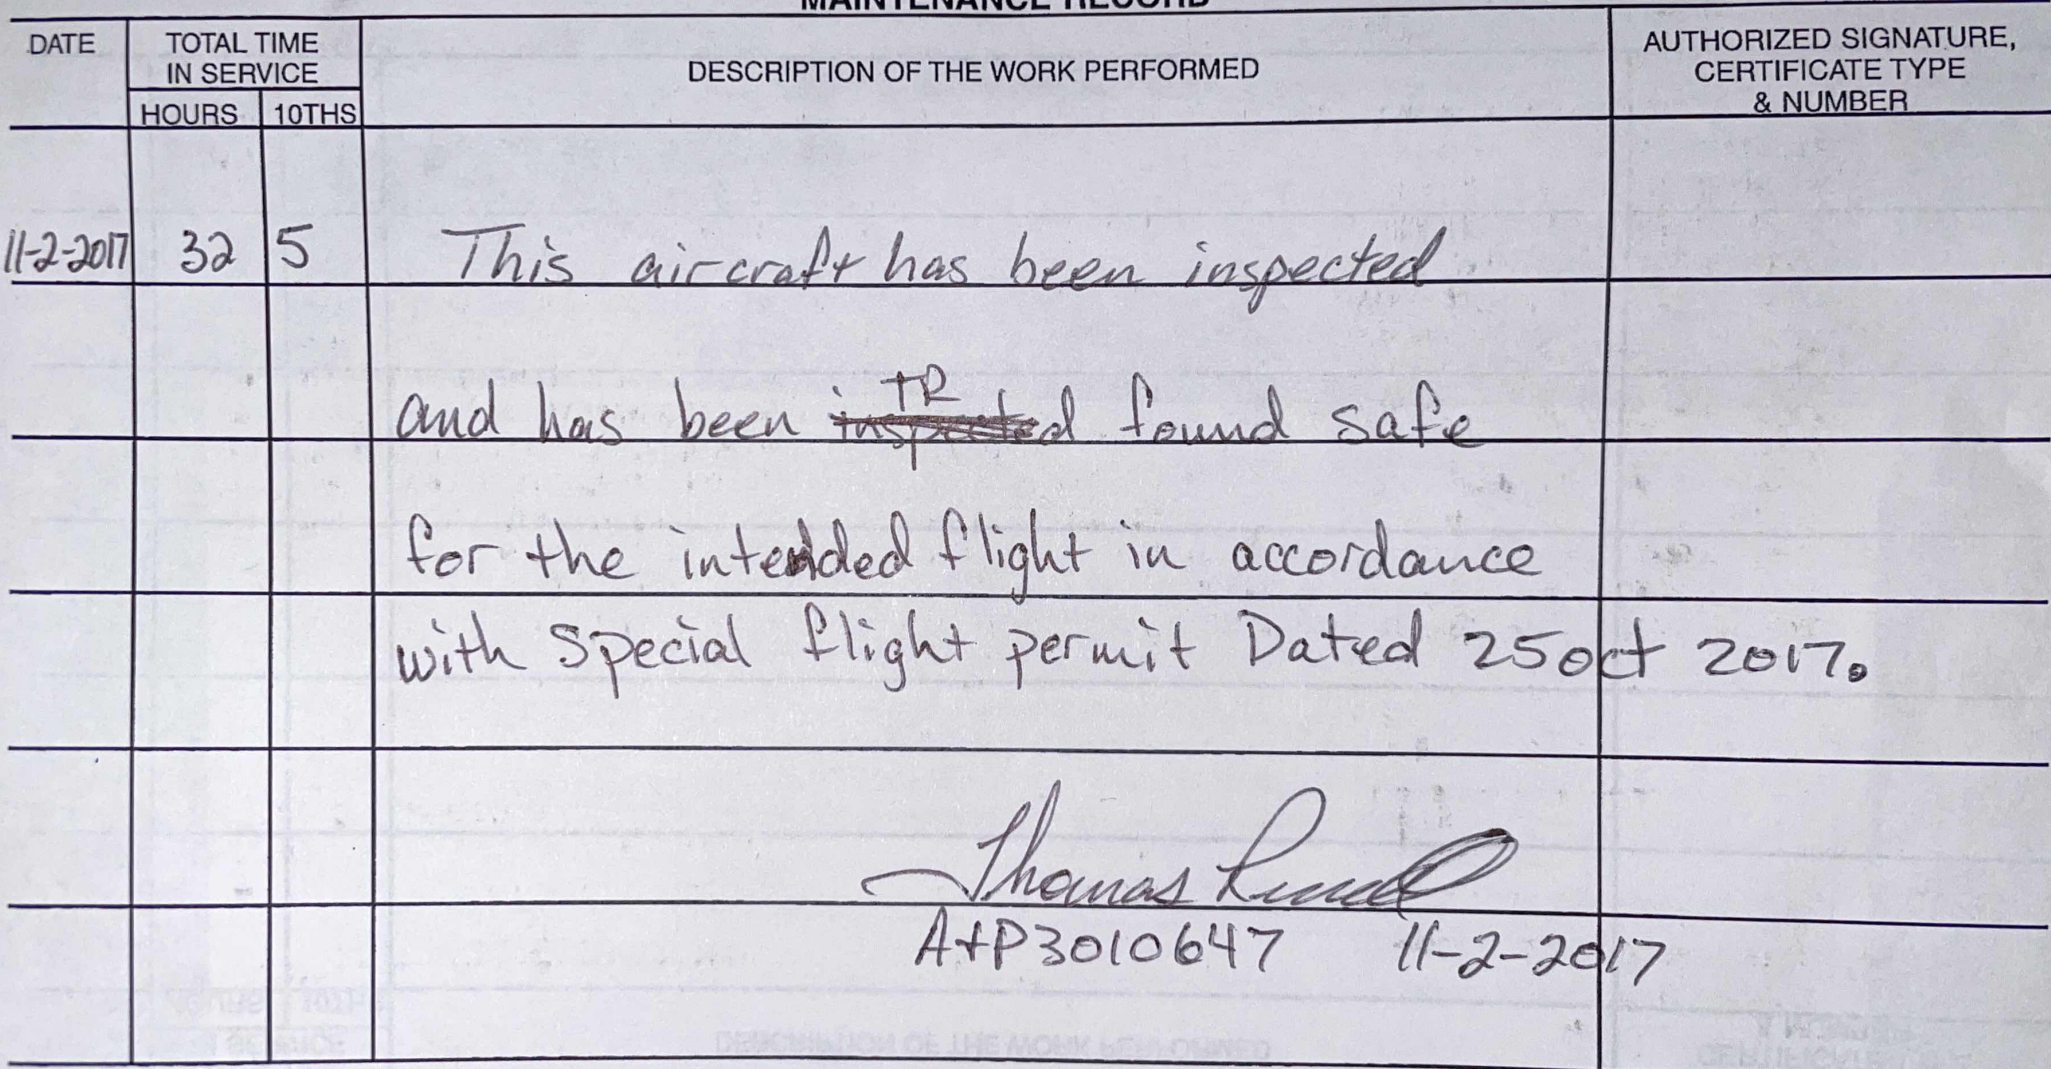 MAINTENANCE RECORD
DATE
TOTAL TIME
IN SERVICE
HOURS 10THS
DESCRIPTION OF THE WORK PERFORMED
AUTHORIZED SIGNATURE,
CERTIFICATE TYPE
& NUMBER
11-2-2017 32 5 This aircraft has been inspected
TR
and has been inspected found safe
for the intended flight in accordance
with special flight permit Dated 25 oct 2017.
Thomas
A+P3010647 11-2-2017